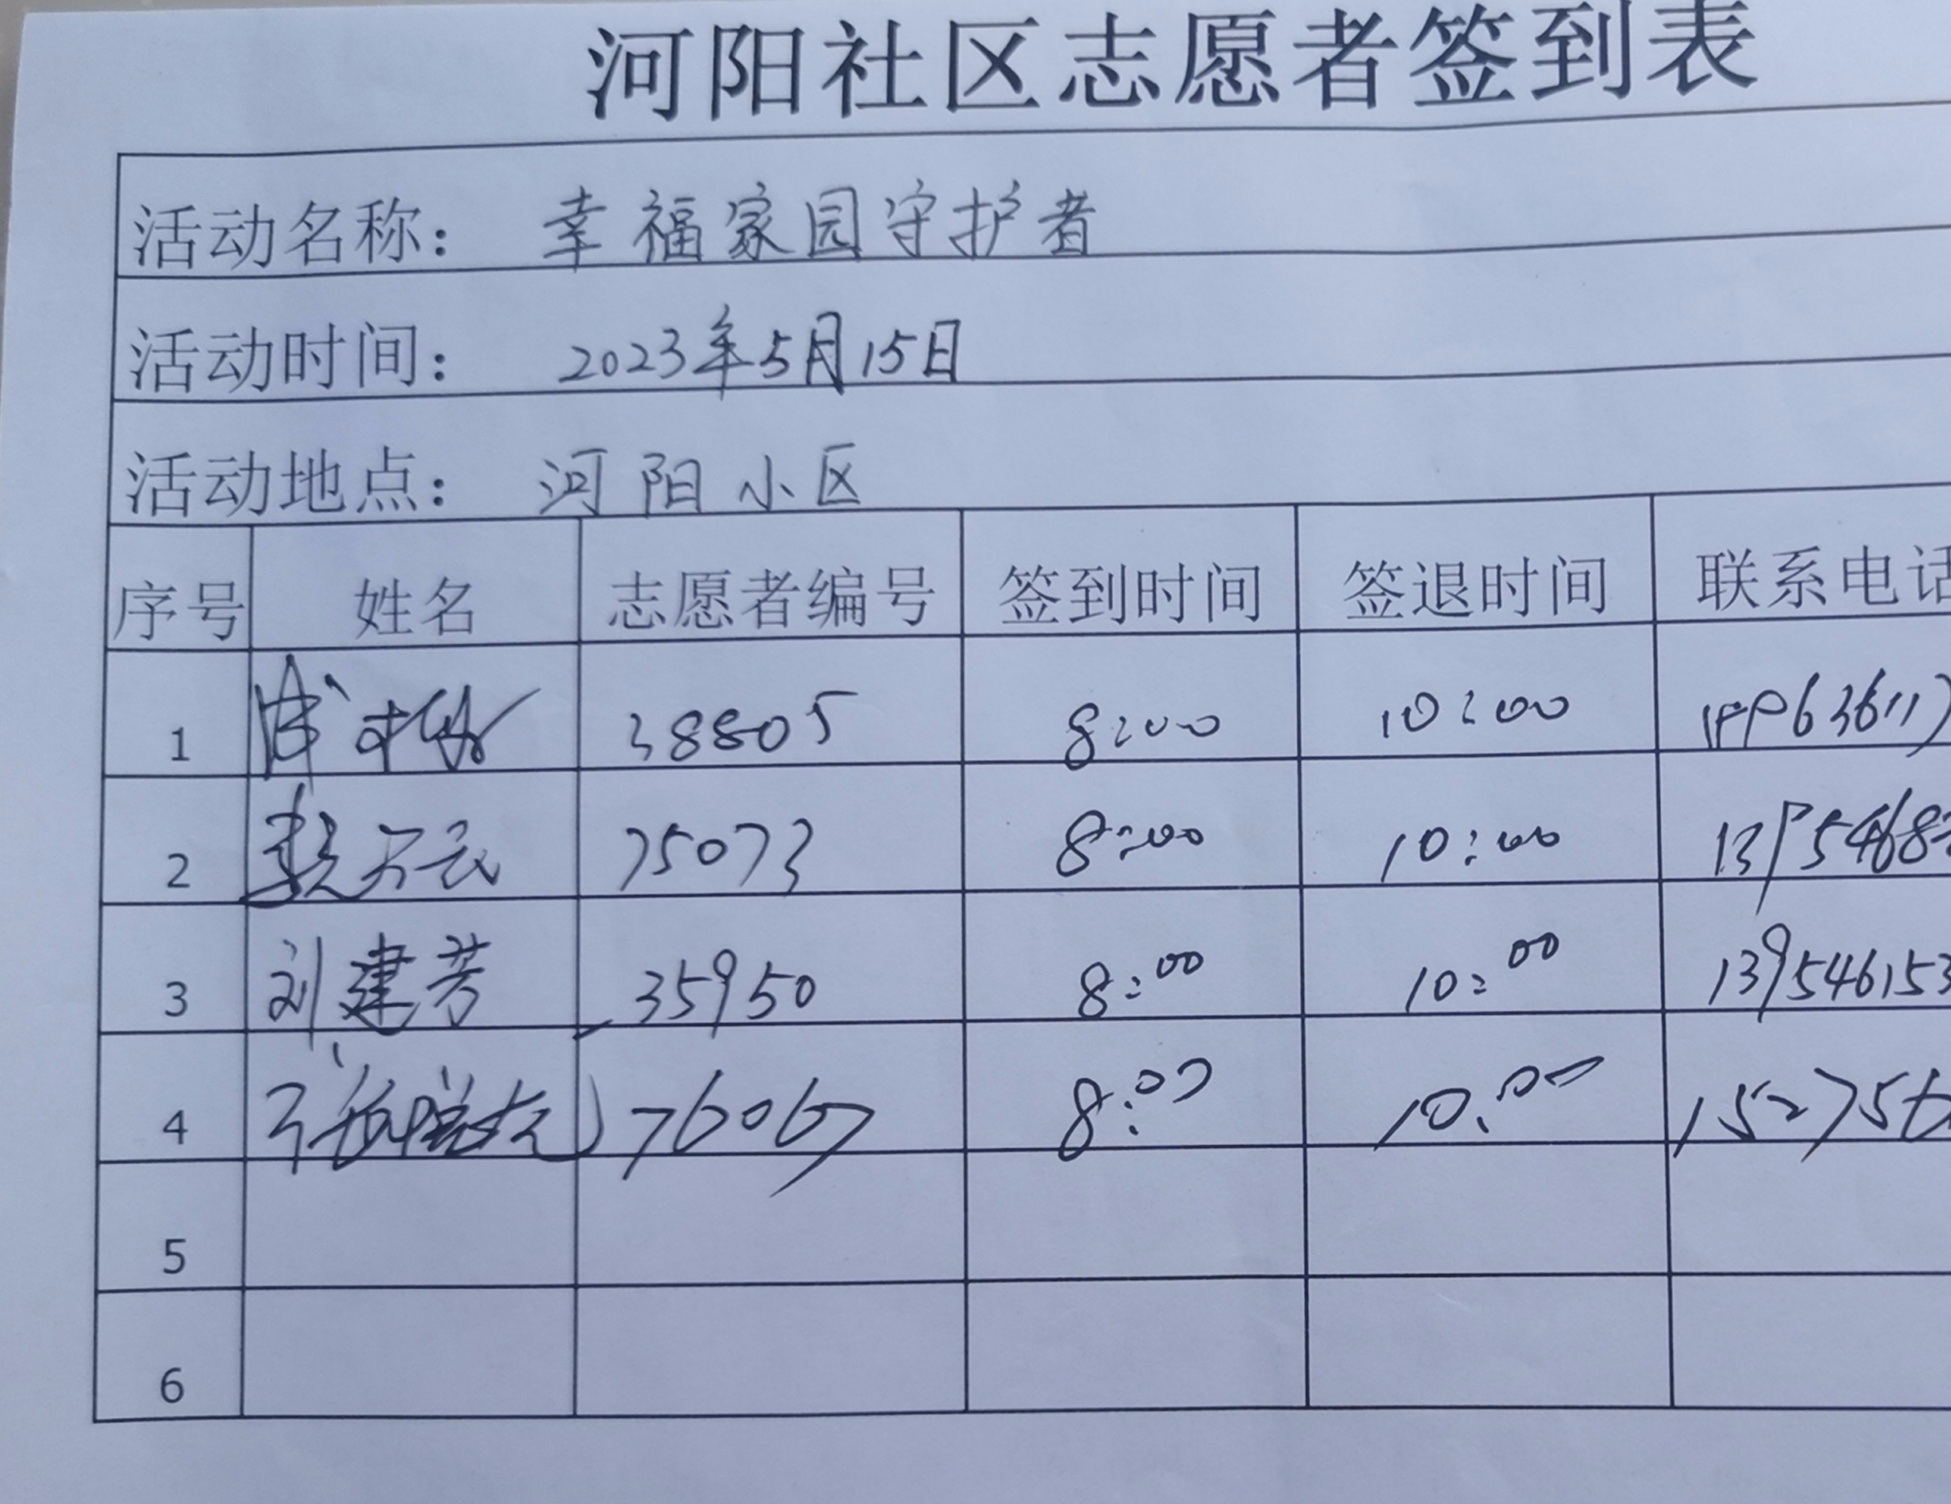 河阳社区志愿者签到表
活动名称: 幸福家园守护者
活动时间: 2023年5月15日
活动地点: 河阳小区
序号 姓名 志愿者编号 签到时间 签退时间 联系电话
1 38805 8:00 10:00
2 75073 8:00 10:00
3 刘建芳 35950 8:00 10:00 139546153
4 76067 8:00 10:00 152756
5
6